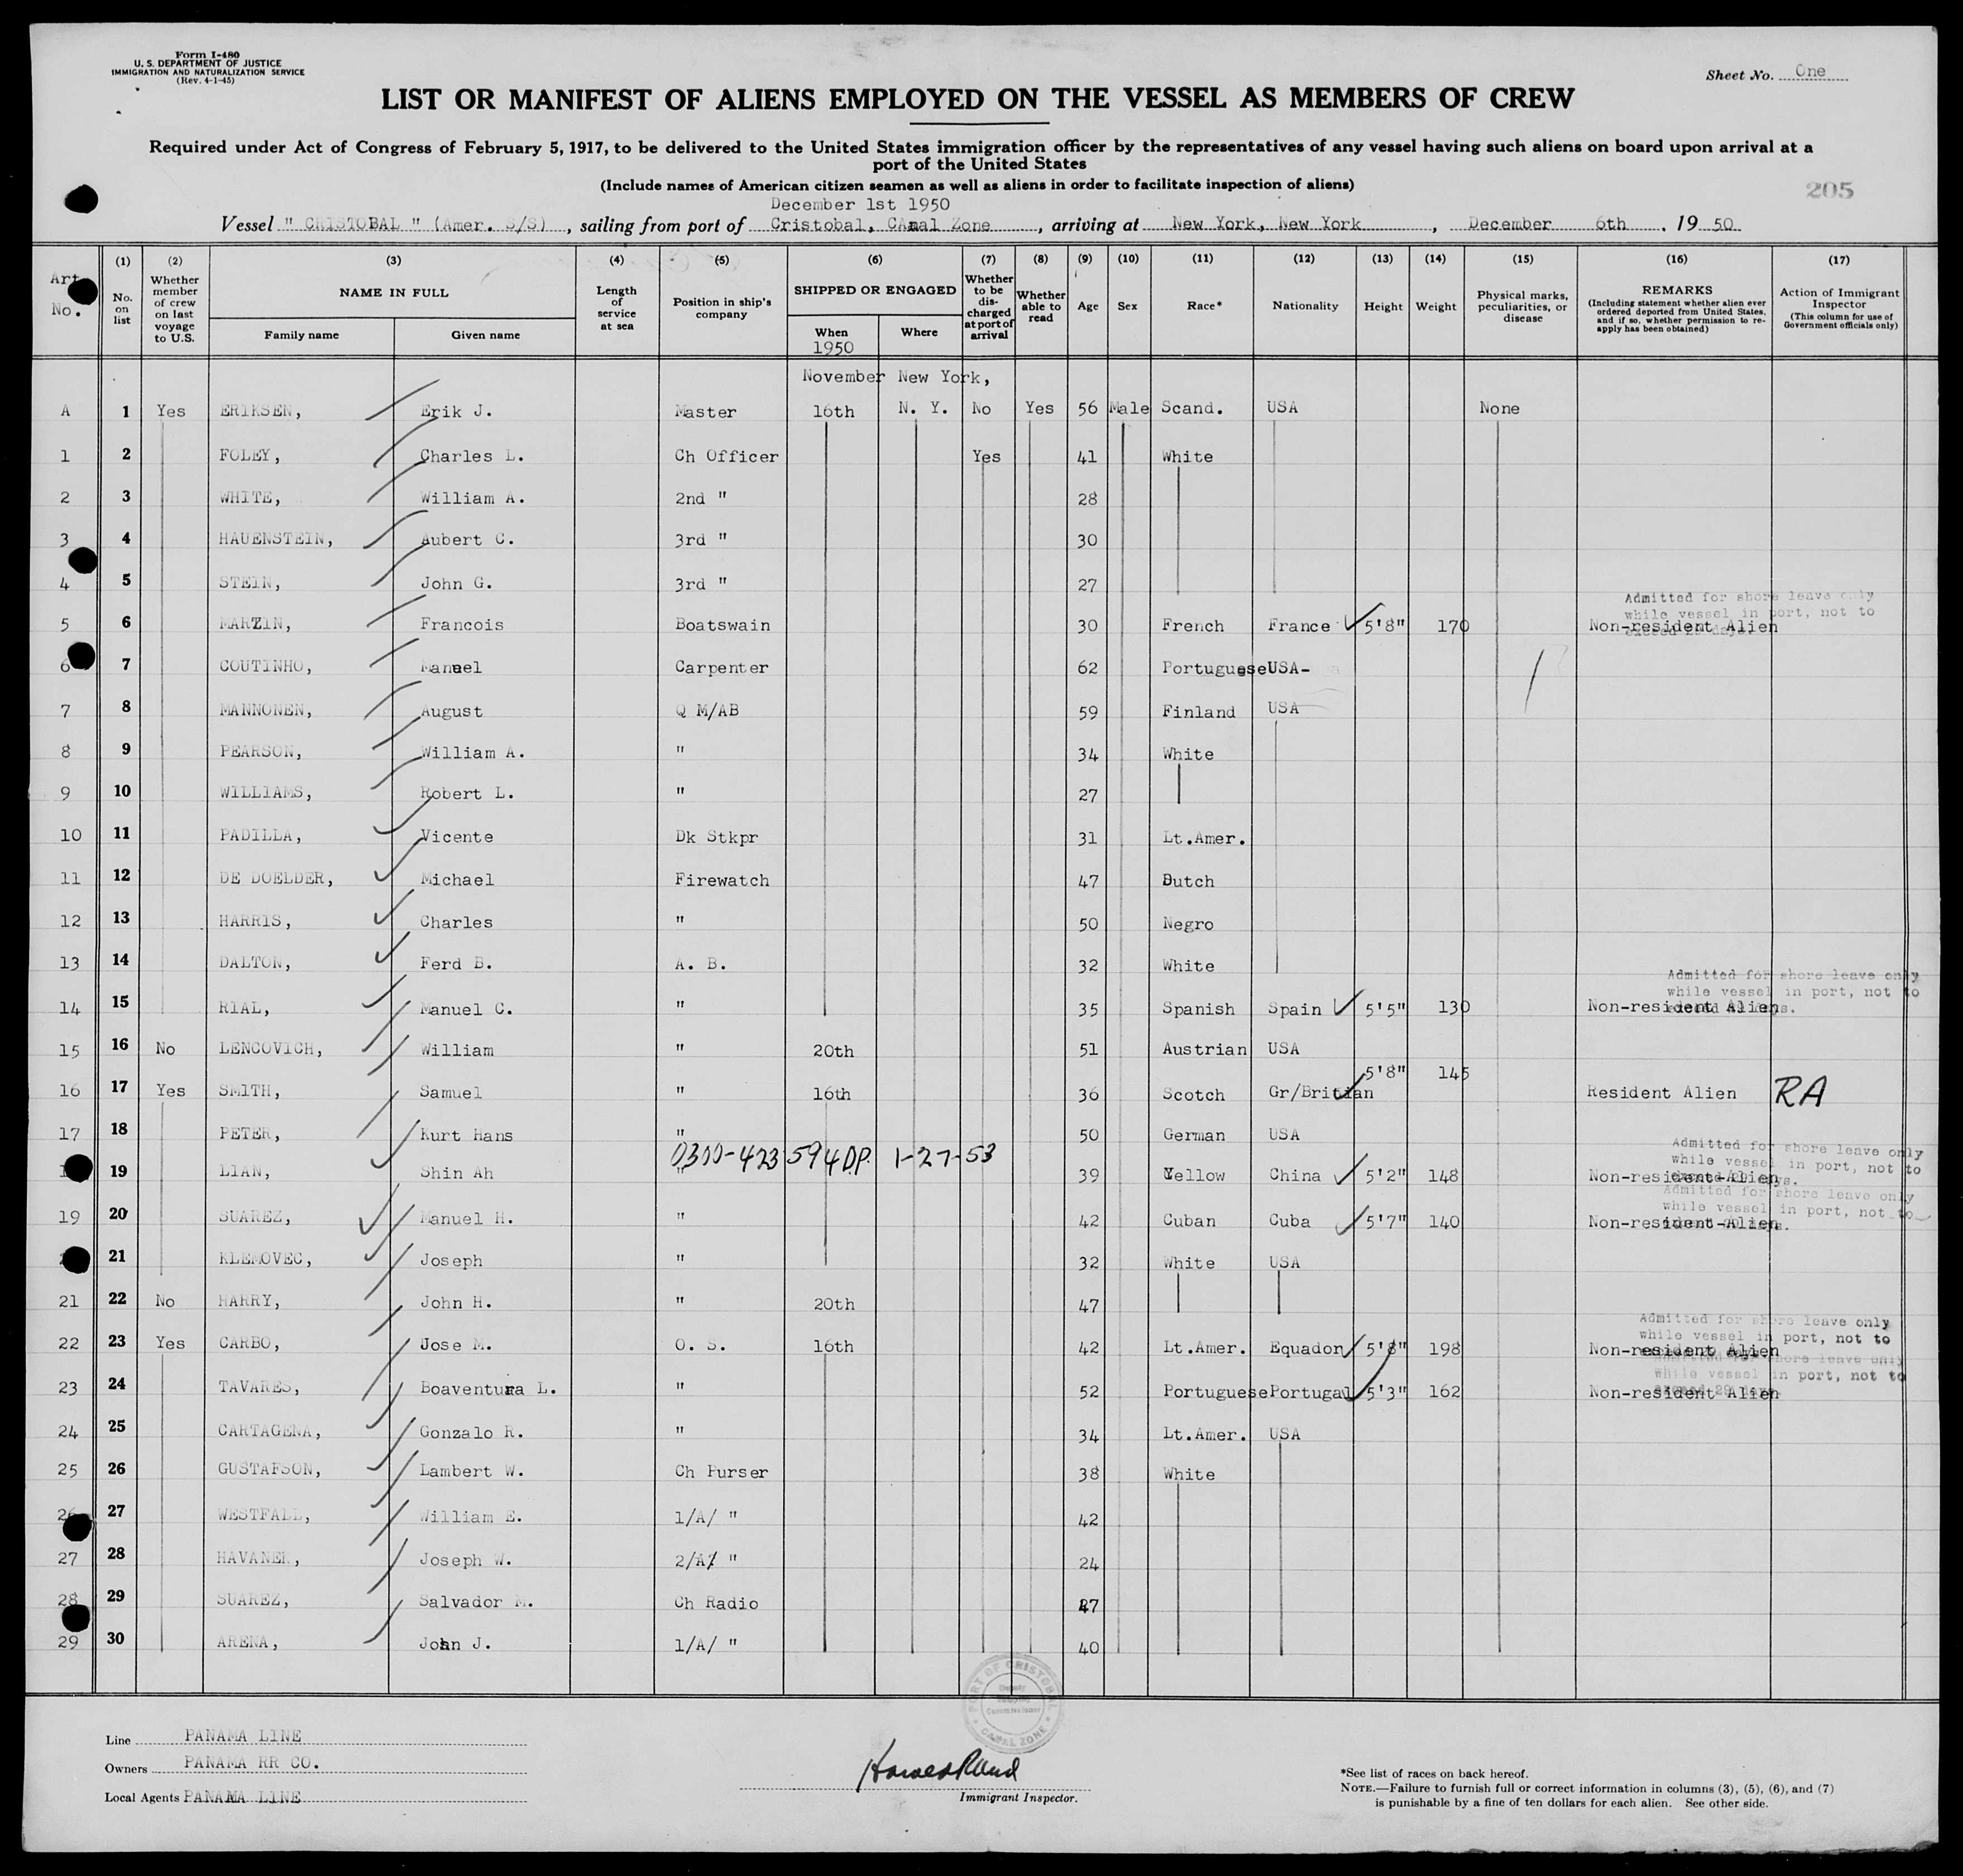 Form I-480
U. S. DEPARTMENT OF JUSTICE
IMMIGRATION AND NATURALIZATION SERVICE
(Rev. 4-1-45)
Sheet No. One
LIST OR MANIFEST OF ALIENS EMPLOYED ON THE VESSEL AS MEMBERS OF CREW
Required under Act of Congress of February 5, 1917, to be delivered to the United States immigration officer by the representatives of any vessel having such aliens on board upon arrival at a
port of the United States
(Include names of American citizen seamen as well as aliens in order to facilitate inspection of aliens)
205
December 1st 1950
Vessel " CRISTOBAL " (Amer. S/S), sailing from port of Cristobal, CAnal Zone, arriving at New York, New York, December 6th, 19 50
Art No.
(1) No. on list
(2) Whether member of crew on last voyage to U.S.
(3) NAME IN FULL
Family name Given name
(4) Length of service at sea
(5) Position in ship's company
(6) SHIPPED OR ENGAGED
When 1950 Where
(7) Whether to be discharged at port of arrival
(8) Whether able to read
(9) Age
(10) Sex
(11) Race*
(12) Nationality
(13) Height
(14) Weight
(15) Physical marks, peculiarities, or disease
(16) REMARKS
(Including statement whether alien ever ordered deported from United States, and if so, whether permission to re-apply has been obtained)
(17) Action of Immigrant Inspector
(This column for use of Government officials only)
November New York,
A 1 Yes ERIKSEN, Erik J. Master 16th N. Y. No Yes 56 Male Scand. USA None
1 2 FOLEY, Charles L. Ch Officer Yes 41 White
2 3 WHITE, William A. 2nd " 28
3 4 HAUENSTEIN, Aubert C. 3rd " 30
4 5 STEIN, John G. 3rd " 27
Admitted for shore leave only
while vessel in port, not to
5 6 MARZIN, Francois Boatswain 30 French France 5'8" 170 Non-resident Alien
6 7 COUTINHO, Manuel Carpenter 62 Portuguese USA-
7 8 MANNONEN, August Q M/AB 59 Finland USA
8 9 PEARSON, William A. " 34 White
9 10 WILLIAMS, Robert L. " 27
10 11 PADILLA, Vicente Dk Stkpr 31 Lt.Amer.
11 12 DE DOELDER, Michael Firewatch 47 Dutch
12 13 HARRIS, Charles " 50 Negro
13 14 DALTON, Ferd B. A. B. 32 White
Admitted for shore leave only
while vessel in port, not to
14 15 RIAL, Manuel C. " 35 Spanish Spain 5'5" 130 Non-resident Alien
15 16 No LENCOVICH, William " 20th 51 Austrian USA
16 17 Yes SMITH, Samuel " 16th 36 Scotch Gr/Britian 5'8" 145 Resident Alien RA
17 18 PETER, Kurt Hans " 50 German USA
0300-423594 D.P. 1-27-53
Admitted for shore leave only
while vessel in port, not to
19 LIAN, Shin Ah " 39 Yellow China 5'2" 148 Non-resident-Alien
Admitted for shore leave only
while vessel in port, not to
19 20 SUAREZ, Manuel H. " 42 Cuban Cuba 5'7" 140 Non-resident-Alien
21 KLEMOVEC, Joseph " 32 White USA
21 22 No HARRY, John H. " 20th 47
Admitted for shore leave only
while vessel in port, not to
22 23 Yes CARBO, Jose M. O. S. 16th 42 Lt.Amer. Equador 5'8" 198 Non-resident Alien
Admitted for shore leave only
while vessel in port, not to
exceed 29 days.
23 24 TAVARES, Boaventura L. " 52 Portuguese Portugal 5'3" 162 Non-resident Alien
24 25 CARTAGENA, Gonzalo R. " 34 Lt.Amer. USA
25 26 GUSTAFSON, Lambert W. Ch Purser 38 White
26 27 WESTFALL, William E. 1/A/ " 42
27 28 HAVANEK, Joseph W. 2/A/ " 24
28 29 SUAREZ, Salvador M. Ch Radio
29 30 ARENA, John J. 1/A/ " 40
PORT OF CRISTOBAL
Deputy
Shipping
Commissioner
CANAL ZONE
Line PANAMA LINE
Owners PANAMA RR CO.
Local Agents PANAMA LINE
Immigrant Inspector.
*See list of races on back hereof.
NOTE.—Failure to furnish full or correct information in columns (3), (5), (6), and (7)
is punishable by a fine of ten dollars for each alien. See other side.